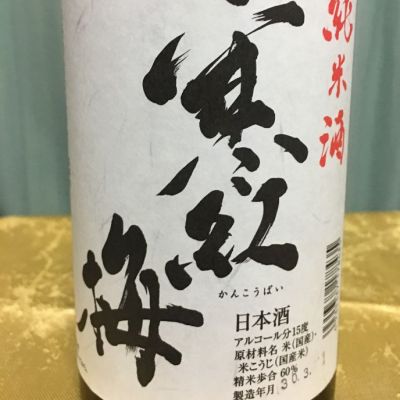 純米酒
寒紅梅
かんこうばい
日本酒
アルコール分15度
原材料名 米(国産)・
米こうじ(国産米)
精米歩合 60%
製造年月 30.3.